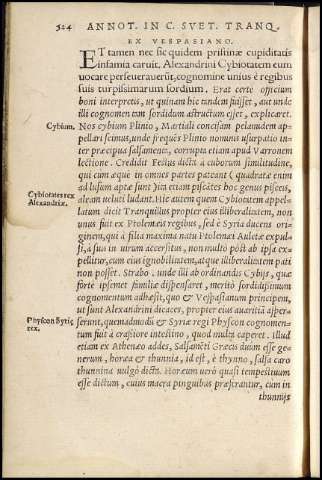 324 ANNOT. IN C. SVET. TRANQ.
EX VESPASIANO.
ET tamen nec sic quidem pristinæ cupiditatis
infamia caruit. Alexandrini Cybiotatem eum
vocare perseuerauerũt, cognomine vnius è regibus
suis turpissimarum sordium. Erat certe officium
boni interpretis, ut quinam hic tandem fuisset, aut unde
illi cognomentum sordidum astructum esset, explicaret.
Cybium. Nos cybium Plinio, Martiali concisam pelamidem ap-
pellari scimus, unde frequẽs Plinio nominis usurpatio in-
ter præcipua salsamenta, corrupta etiam apud Varronem
lectione. Credidit Festus dicta à cuborum similitudine,
qui cum æque in omnes partes pateant (quadrata enim
ad lusum apta sunt) ita etiam piscatos hoc genus pisceis,
Cybiotates rex
Alexandriæ.
aleam ueluti ludant. Hic autem quem Cybiotatem appel-
latum dicit Tranquillus propter eius illiberalitatem, non
unus fuit ex Ptolemæis regibus, sed è Syria ducens ori-
ginem, qui à filia maxima natu Ptolemæi Auletæ expul-
si, à suis in uirum accersitus, non multò pòst ab ipsa ex-
pellitur, cum eius ignobilitatem, atque illiberalitatem pati
non posset. Strabo. unde illi ab ordinandis Cybijs, quæ
fortè ipsemet familiæ dispensaret, meritò sordidissimum
cognomentum adhæsit, quo & Vespasianum principem,
ut sunt Alexandrini dicaces, propter eius auaritiã asper-
Physcon Syriæ
rex.
serunt, quemadmodũ & Syriæ regi Physcon cognomen-
tum fuit à crassiore intestino, quod multa caperet. Illud
etiam ex Athenæo addes, Salsamẽti Græcis duum esse ge-
nerum, horæa & thunnia, id est, è thynno, salsa caro
thunnina uulgò dicta. Horæum uerò quasi tempestiuum
esse dictum, cuius macra pinguibus præstrantur, cum in
thunnijs